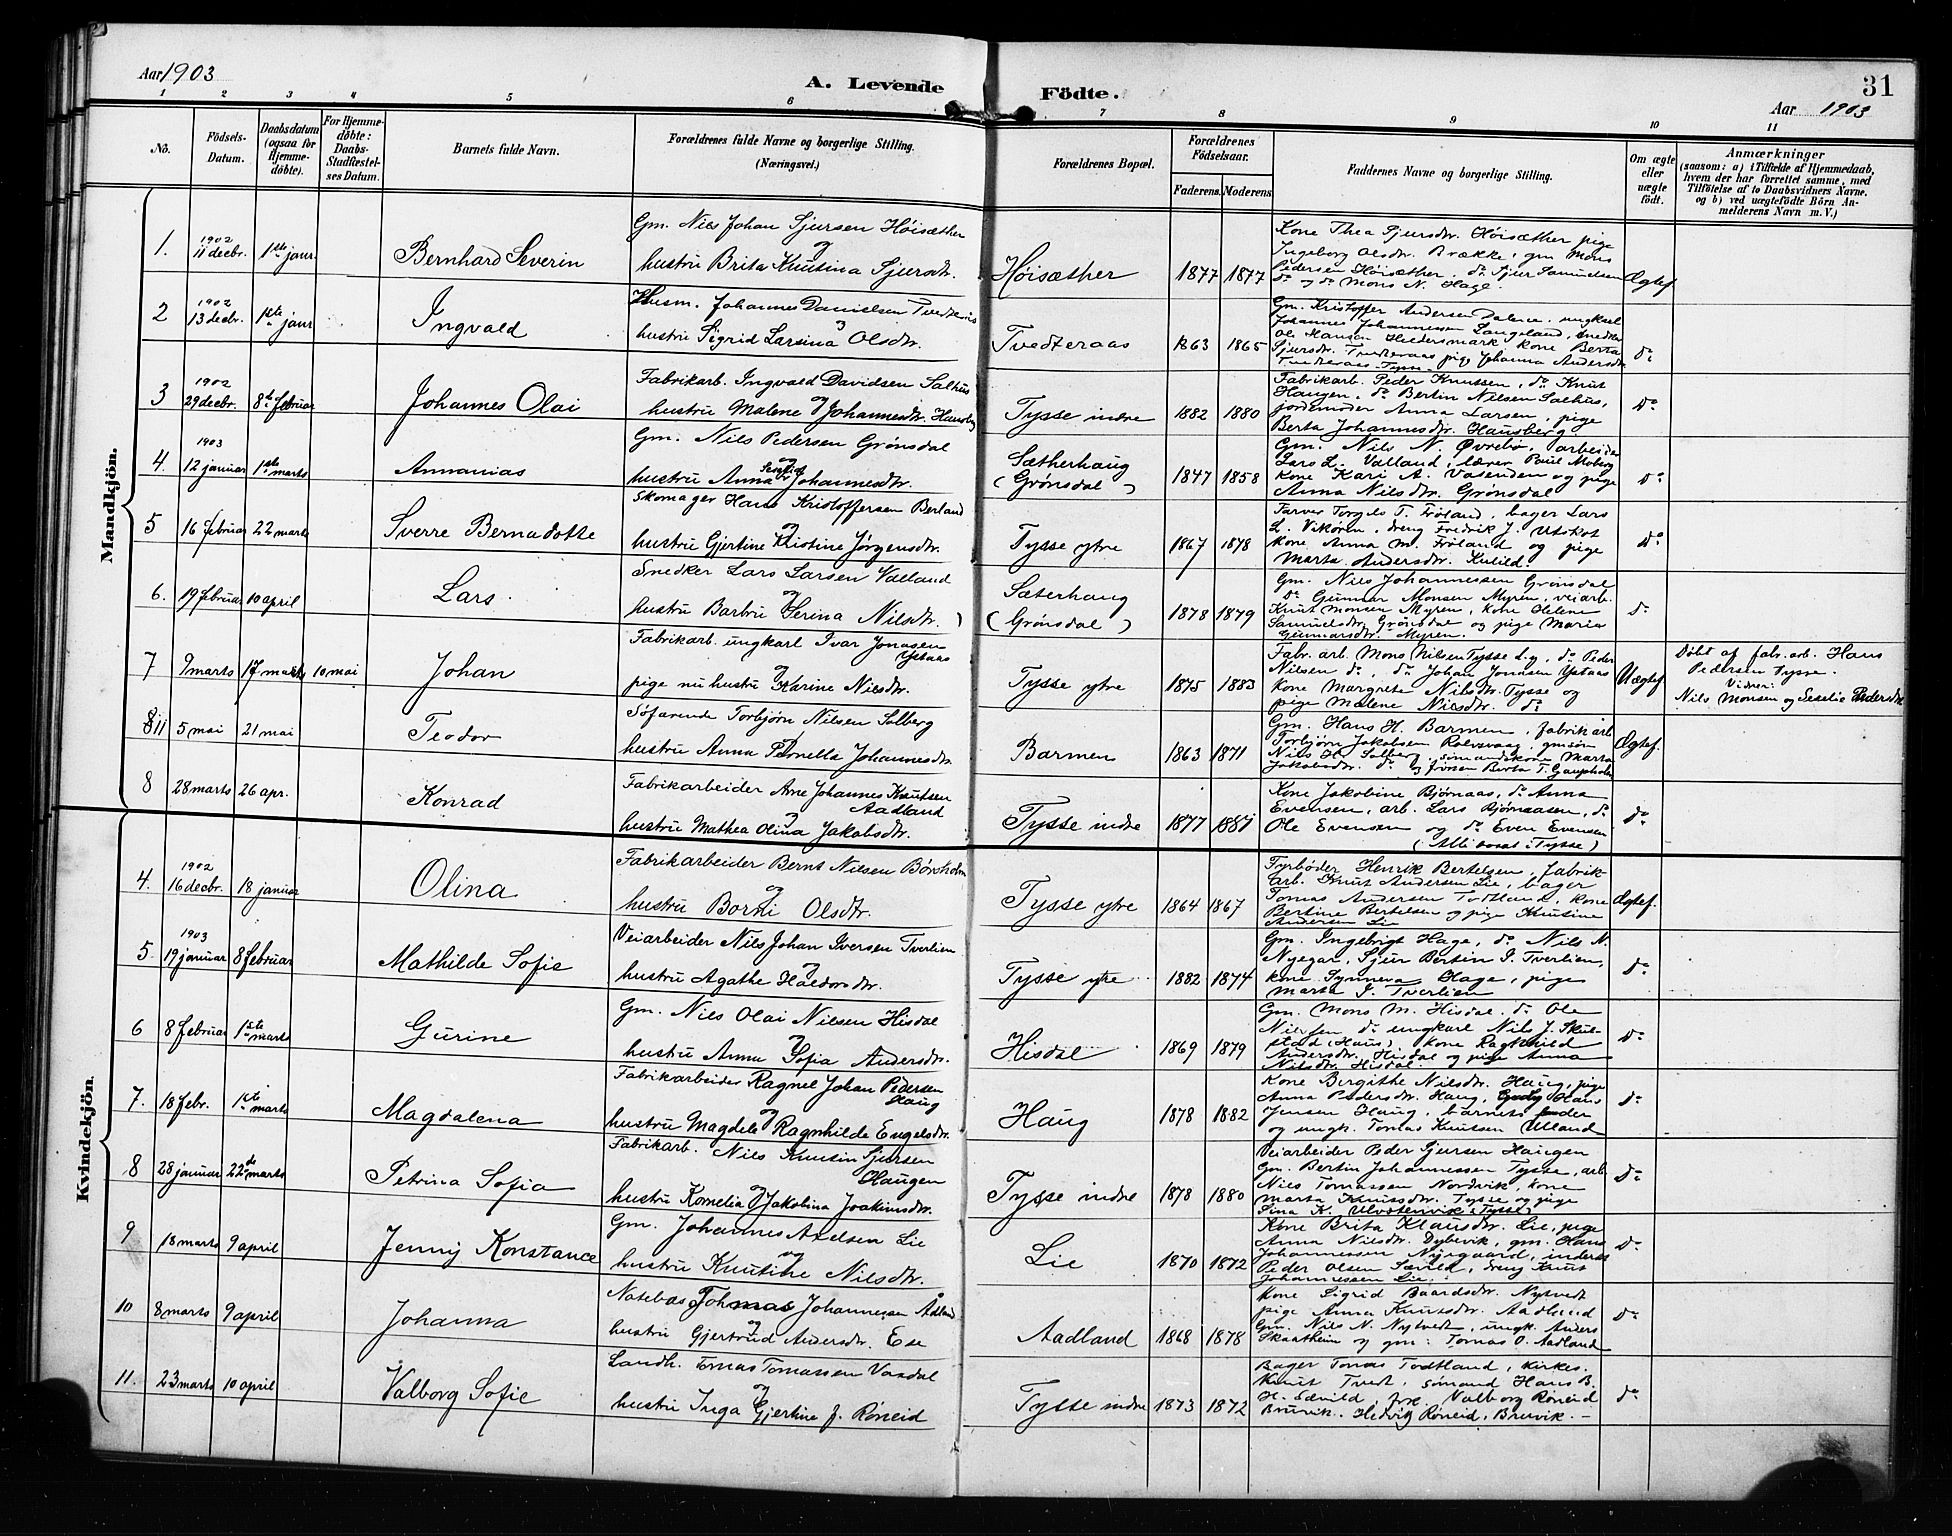 Aar 1903
A. Levende Födte.
31
Aar 1903
1 2 3 4 5 6 7 8 9 10 11
No.
Födsels-Datum.
Daabsdatum (ogsaa for Hjemmedøbte).
For Hjemmedøbte: Daabs-Stadfæstelses Datum.
Barnets fulde Navn.
Forældrenes fulde Navne og borgerlige Stilling. (Næringsvei.)
Forældrenes Bopæl.
Forældrenes Födselsaar.
Faderens. Moderens.
Faddernes Navne og borgerlige Stilling.
Om ægte eller uægte født.
Anmærkninger
(saasom: a) i Tilfælde af Hjemmedaab, hvem der har forrettet samme, med Tilföielse af to Daabsvidners Navne. og b) ved uægtefödte Börn Anmelderens Navn m.V.)
Mandkjön.
1. 1902 11 decbr. 1ste janr Bernhard Severin
Gm. Nils Johan Sjursen Höisæther
og
hustru Brita Knutina Sjursdtr.
Höisæther 1877 1877
Kone Thea Sjursdtr. Höisæther pige
Ingeborg Olsdtr. Brække, gm Mons
Pedersen Höisæther, do Sjur Samuelsen
do og do Mons N. Hage.
Ægtef
2 1902 13 decbr. 1ste janr Ingvald
Husm. Johannes Danielsen Tvedteraas
og
hustru Sigrid Larsina Olsdtr.
Tvedteraas 1863 1865
Gm. Kristoffer Andersen Dalene, ungkarl
Johannes Johannessen Langeland, snedker
Ol. Hansen Hedersmark kone Berta
Sjursdtr. Tvedteraas pige Johanna Andersdtr
Tvedteraas Tysse
do
3 1902 29 decbr. 8de februar Johannes Olai
Fabrikarb. Ingvald Davidsen Salhus
og
hustru Malene Johannesdtr. Hausberg
Tysse indre 1882 1880
Fabrikarb. Peder Knutsen, do Knut
Haugen, do Bertin Nilsen Salhus,
jordemoder Anna Larsen, pige
Berta Johannesdtr. Hausberg
Do
4. 1903 12 januar 1ste marts Annanias
Gm. Nils Pedersen Grönsdal
og
hustru Anna Serina Johannesdtr.
Sætherhaug
(Grönsdal) 1847 1858
Gm. Nils N. Övrebö, arbeider
Lars L. Valland, lærer Paul Moberg
kone Kari A. Vatenden og pige
Anna Nilsdtr. Grönsdal
Do
5 16 februar 22 marts Sverre Bernadotte
Skomager Hans Kristoffersen Berland
og
hustru Gjertine Kristine Jörgensdtr.
Tysse ytre 1867 1878
Farver Torgils T. Fröland, bager Lars
L. Vikören, dreng Fredrik J. Utskot
kone Anna M. Fröland og pige
Marta Andersdtr. Kulild.
Do
6. 19 februar 10 april Lars.
Snedker Lars Larsen Valland
og
hustru Barbru Serina Nilsdtr.
Sæterhaug
(Grönsdal) 1878 1879
Gm. Nils Johannessen Grönsdal
do Gunnar Monsen Myren, veiarb.
Knut Monsen Myren, kone Helene
Samuelsdtr Grönsdal og pige Maria
Gunnarsdtr. Myren.
do
7 9 marts 17 marts 10 mai Johan
Fabrikarb. ungkarl Ivar Jonasen
Ystaas
og
pige nu hustru Karine Nilsdtr.
Tysse ytre 1875 1883
Fabr. arb. Mons Nilsen Tysse L.y, do Peder
Nilsen do, do Johan Jonasen Ystaas
kone Margrete Nilsdtr. Tysse og
pige Malene Nilsdtr. do
Uægtef
Döbt af fabr. arb. Hans
Pedersen Tysse.
Vidner:
Nils Monsen og Seselie Pedersdtr
8 11 5 mai 21 mai Teodor
Söfarende Torbjörn Nilsen Solberg
hustru Anna Pernella Johannesdtr.
Barmen 1863 1871
Gm. Hans H. Barmen, fabrikarb
Torbjörn Jakobsen Rolvsvaag, gmsön
Nils H. Solberg, sömandskone Marta
Jakobsdtr. do og Berta T. Gaupholm
Ægtef.
8 28 marts 26 apr. Konrad
Fabrikarbeider Arne Johannes Knutsen
Aadland
og
hustru Mathea Olina Jakobsdtr.
Tysse indre 1877 1881
Kone Jakobine Björnaas, do Anna
Evensen, arb. Lars Björnaasen, do
Ole Evensen og do Even Evensen
(Alle bosat i Tysse)
do
Kvindekjön.
4. 1902 16 decbr. 18 januar Olina
Fabrikarbeider Bernt Nilsen Börsholm
og
hustru Borni Olsdtr.
Tysse ytre 1864 1867
Fyrböder Henrik Bertelsen, fabrik-
arb. Knut Andersen Lie, bager
Tomas Andersen Totland, kone
Bertine Bertelsen og pige Knutine
Andersen Lie
Ægtef.
5. 1903 19 januar 8 februar Mathilde Sofie
Veiarbeider Nils Johan Iversen Tverlien
og
hustru Agathe Haldorsdtr.
Tysse ytre 1882 1874
Gm. Ingebrigt Hage, do Nils N.
Nyegar, Sjur Bertin I. Tverlien,
kone Synneva Hage, pige
Marta I. Tverlien
do
6 8 februar 1ste marts Gurine
Gm. Nils Olai Nilsen Hisdal
og
hustru Anna Sofia Andersdtr.
Hisdal 1869 1879
Gm. Mons M. Hisdal. do Ole
Nilsen do ungkarl Nils J. Skul-
stad (Haus). kone Ragnhild
Andersdtr. Hisdal og pige Anna
Nilsdtr. Hisdal.
do
7. 18 febr. 1ste marts Magdalena
Fabrikarbeider Ragnel Johan Pedersen
Haug
og
hustru Magdela Ragnhilde Engelsdtr.
Haug 1878 1882
Kone Birgithe Nilsdtr. Haug, pige
Anna Pedersdtr. Haug, Hans
Jensen Haug, barnets fader
og ungk. Tomas Knutsen Ulland
do
8 28 januar 22de marts Petrina Sofia
Fabrikarb. Nils Knutin Sjursen
Haugen
og
hustru Kornelia Jakolina Joakimsdtr.
Tysse indre 1878 1880
Veiarbeider Peder Gjursen Haugen
Gm. Bertin Johannessen Tysse, arb.
Nils Tomassen Nordvik, kone
Marta Knutsdtr. Tysse og pige
Sina K. Ulvstenvik i Tysse)
do
9 18 marts 9 april Jenny Konstance
Gm. Johannes Axelsen Lie
og
hustru Knutine Nilsdtr.
Lie 1870 1872
Kone Brita Klausdtr. Lie, pige
Anna Nilsdtr. Dybevik, gm. Hans
Johannessen Nyegaard, inderst
Peder Olsen Sævild, dreng Knut
Johannessen Lie.
do
10 8 marts 9 april Johanna
Notebas Johannessen Ådland
og
hustru Gjertrud Andersdtr. Ese
Aadland 1868 1878
Kone Sigrid Baardsdtr. Nytvedt
pige Anna Knutsdtr. Aadland
Gm. Nils N. Nytvedt, ungk. Anders
Skaatheim og gm: Tomas O. Aadland
do
11. 23 marts 10 april Valborg Sofie
Landh. Tomas Tomassen Vasdal
og
hustru Inga Gjertine f. Röneid
Tysse indre 1873 1872
Bager Tomas Todtland, kirkes.
Knut Tvedt, sömand Hans B.
H. Sævild, frk. Valborg Röneid
Bruvik. Hedvig Röneid, Bruvik. —
do